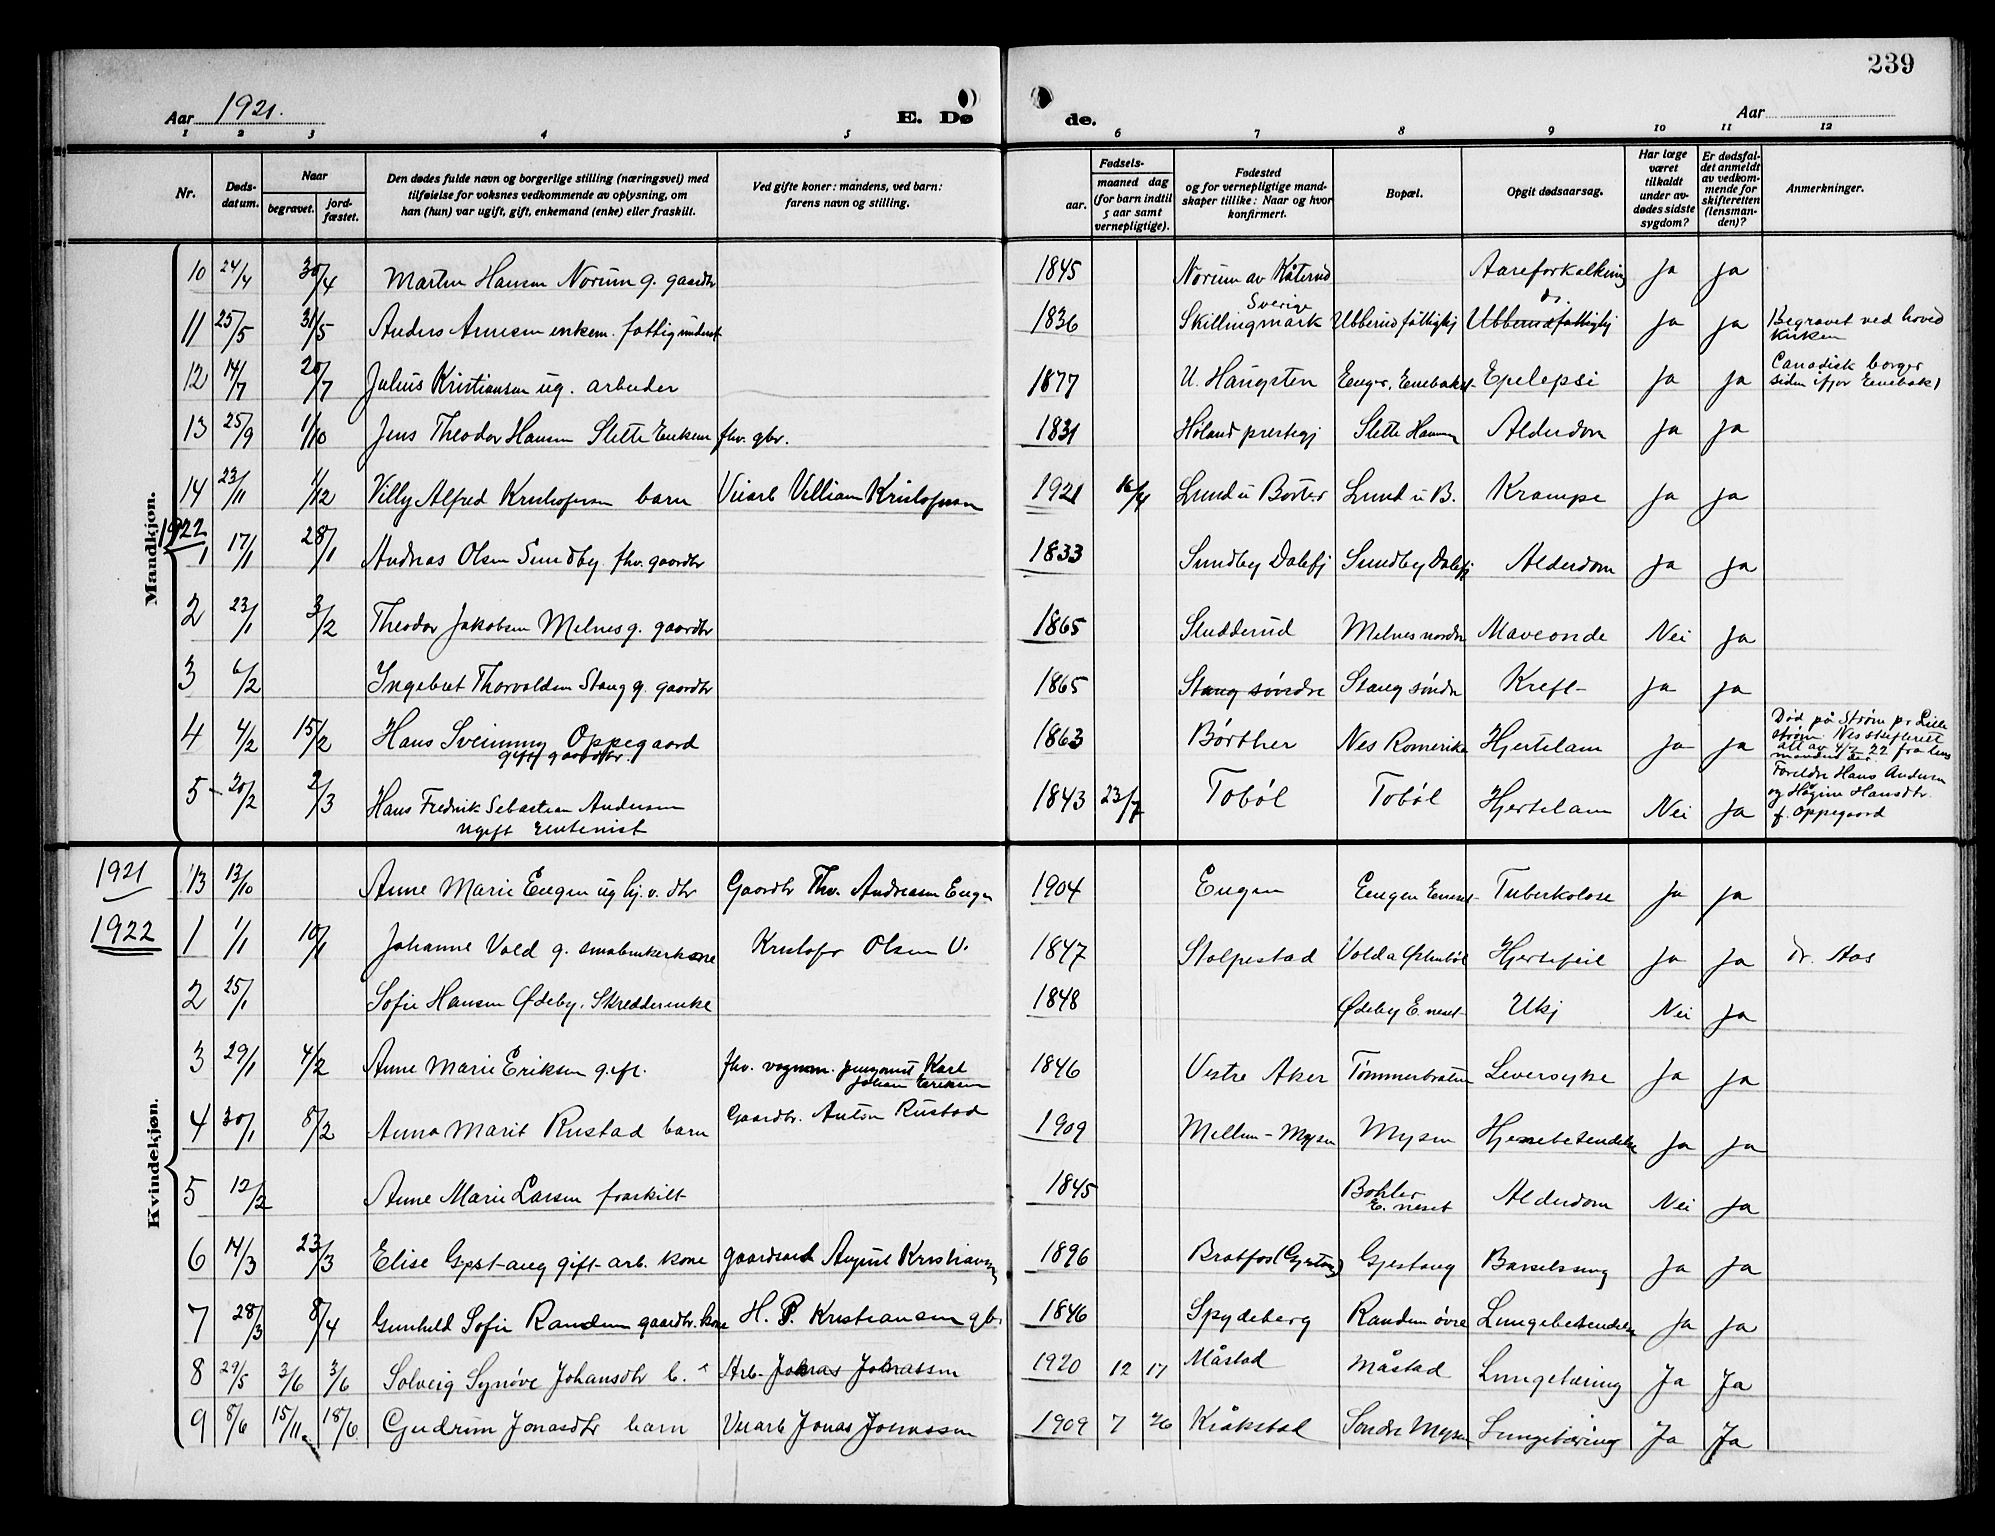 239
Aar 1921.
E. Dø
de.
Aar
1 2 3 4 5 6 7 8 9 10 11 12
Nr.
Døds-
datum.
Naar
begravet.
jord-
fæstet.
Den dødes fulde navn og borgerlige stilling (næringsvei) med
tilføielse for voksnes vedkommende av oplysning, om
han (hun) var ugift, gift, enkemand (enke) eller fraskilt.
Ved gifte koner: mandens, ved barn:
farens navn og stilling.
Fødsels-
aar.
maaned dag
(for barn indtil
5 aar samt
vernepligtige).
Fødested
og for vernepligtige mand-
skaper tillike: Naar og hvor
konfirmert.
Bopæl.
Opgit dødsaarsag.
Har læge
været
tilkaldt
under av-
dødes sidste
sygdom?
Er dødsfal-
det anmeldt
av vedkom-
mende for
skifteretten
(lensman-
den)?
Anmerkninger.
Mandkjøn.
10 24/4 30/4 Martin Hansen Norum g. gaardbr 1845 Norum av Kåterud Aareforkalkning Ja Ja
11 25/5 31/5 Anders Arnesen enkem. fattigunderst 1836 Skillingmark Sverige Ubberud fattighj Ubberud fattighj Ja Ja Begravet ved hoved
kirken
12 14/7 20/7 Julius Kristiansen ug. arbeider 1877 U. Haugsten Enger, Enebaknes Epelepsi Ja Ja Canadisk borger
siden ifjor Enebak)
13 25/9 1/10 Jens Theodor Hansen Slette Enkem fhv. gbr. 1831 Høland prestegj Slette Alderdom Ja Ja
14 23/11 1/12 Villy Alfred Kristofersen barn Veiarb Villiam Kristofersen 1921 16/4 Lund u Borter Lund u B. Krampe Ja Ja
1922
1 17/1 28/1 Andreas Olsen Sundby fhv. gaardbr 1833 Sundby Dalefj Sundby Dalefj Alderdom Ja Ja
2 23/1 3/2 Theodor Jakobsen Melnes g. gaardbr 1865 Studderud Melnes nordre Maveonde Nei Ja
3 6/2 Ingebret Thorvaldsen Stang g. gaardbr 1865 Stang søndre Stang søndre Kreft Ja Ja
4 4/2 15/2 Hans Svenning Oppegaard
gift gaardbr. 1863 Børther Nes Romerike Hjertelam Ja Ja Død på Strøm pr Lille
strøm. Nes skifterett
att av 4/2 22 fra lens
manden der.
5 20/2 2/3 Hans Fredrik Sebastian Andersen
ugift rentenist 1843 23/7 Tobøl Tobøl Hjertelam Nei Ja Foreldre Hans Andersen
og Høgine Hansdtr.
f. Oppegaard
Kvindekjøn.
1921
13 13/10 Anne Marie Eugen ug hj. v. dtr Gaardbr Thv. Andreasen Eugen 1904 Eugen Eugen Eneset Tuberkolose Ja Ja
1922
1 1/1 10/1 Johanne Vold g. smabrukerkone Kristofer Olsen V. 1847 Stolpestad Vold Hjertefeil Ja Ja Dr. Aas
2 25/1 Sofie Hansen Ødeby. Skredderenke 1848 Ødeby E. neset Ukj Nei Ja
3 29/1 4/2 Anne Marie Eriksen gift. fhv. vognm. Karl
Johan Eriksen 1846 Vestre Aker Tømmerbraten Leversyke Ja Ja
4 30/1 8/2 Anna Marit Rustad barn Gaardbr. Anton Rustad 1909 Mellem-Mysen Mysen Hjernebetendelse Ja Ja
5 12/2 Anne Marie Larsen fraskilt 1845 Bohler
E. neset Alderdom Nei Ja
6 14/3 23/3 Elise Gjestaug gift arb. kone gaardsarb August Kristiansen 1896 Bratfos (Gjestaug) Gjestaug Barselseng Ja Ja
7 28/3 8/4 Gunhild Sofie Randem gaardbr. kone H. P. Kristiansen gbr 1846 Spydeberg Randem øvre Lungebetendelse Ja Ja
8 29/5 3/6 3/6 Solveig Synøve Johansdtr b. Arb. Johnas Johnassen 1920 12 17 Måstad Måstad Lungetæring Ja Ja
9 8/6 15/11 18/6 Gudrun Jonasdtr barn Veiarb Jonas Jonassen 1909 7 26 Kråkstad Søndre Mysen Lungetæring Ja Ja